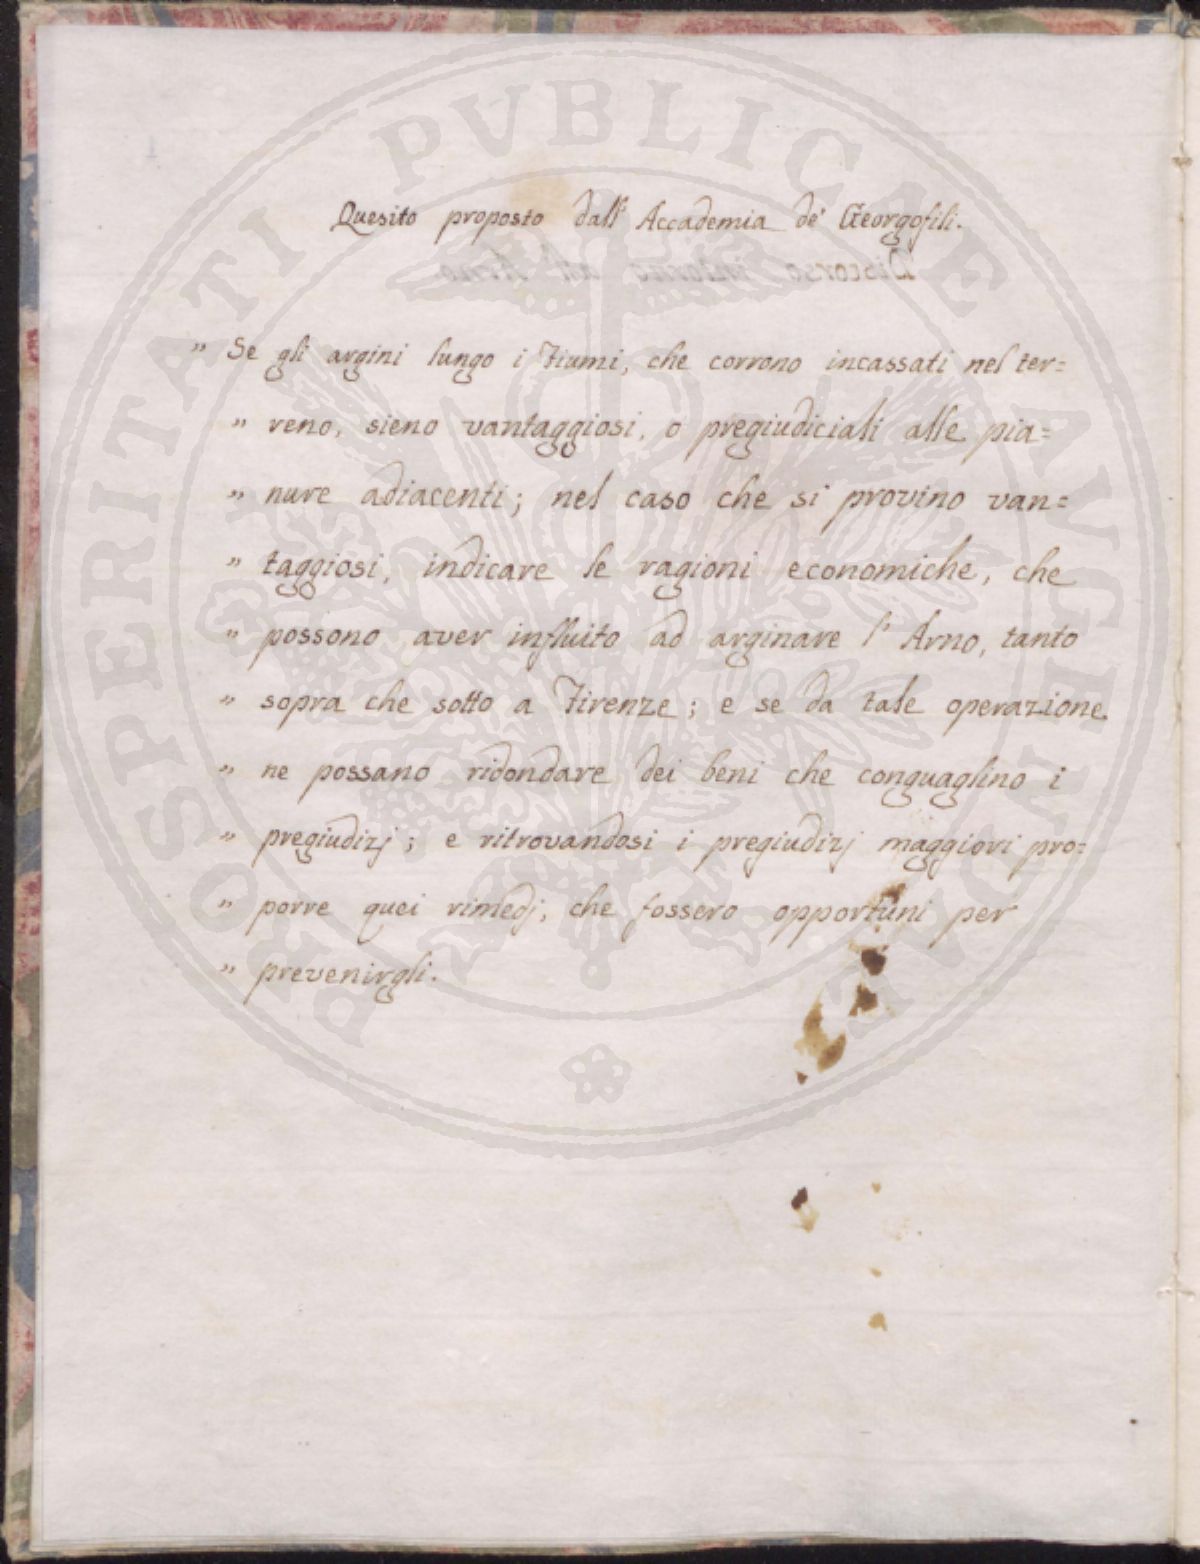 Quesito proposto dall' Accademia de' Georgofili.
" Se gli argini lungo i Fiumi, che corrono incassati nel ter=
" reno, sieno vantaggiosi, o pregiudiciali alle pia=
" nure adiacenti; nel caso che si provino van=
" taggiosi, indicare le ragioni economiche, che
" possono aver influito ad arginare l' Arno, tanto
" sopra che sotto a Firenze; e se da tale operazione
" ne possano ridondare dei beni che conguaglino i
" pregiudizj; e ritrovandosi i pregiudizj maggiori pro=
" porre quei rimedj, che fossero opportuni per
" prevenirgli.
PROSPERITATI PVBLICAE AVGENDAE